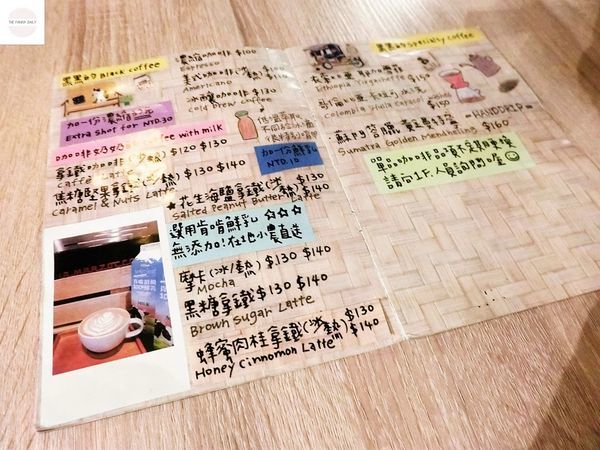 THE FUNNY DAILY
黑黑的 black coffee
濃縮咖啡 $100
Espresso
美式咖啡(冰/熱) $100
Americano
冰釀咖啡
Cold Brew coffee
加一份濃縮
Extra shot for NTD.30
咖啡奶奶 Coffee with milk
拿鐵咖啡(冰/熱) $120 $130
Caffè Latte
焦糖堅果拿鐵(冰/熱) $130 $140
Caramel & Nuts Latte
加一份鮮乳
NTD.10
★花生海鹽拿鐵(冰/熱) $130 $140
Salted Peanut Butter Latte
選用肯啃鮮乳 ☆☆☆
無添加!在地小農直送
摩卡(冰/熱) $130 $140
Mocha
黑糖拿鐵 $130 $140
Brown Sugar Latte
蜂蜜肉桂拿鐵(冰/熱) $130 $140
Honey Cinnomon Latte
黑黑的 specialty coffee
Ethiopia Yirgacheffe $150
Colombia $150
-HANDDRIP-
蘇門答臘 黃金曼特寧 $160
Sumatra Golden Mandheling
單品咖啡品項不定期更換
請向工人員詢問喔